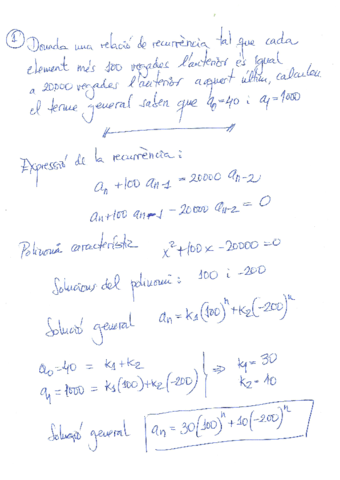 ① Donada una relació de recurrència tal que cada
element més 100 vegades l'anterior és igual
a 20000 vegades l'anterior aquest últim, calculeu
el terme general saben que a₀=40 i a₁=1000
Expressió de la recurrència:
aₙ + 100 aₙ₋₁ = 20000 aₙ₋₂
aₙ + 100 aₙ₋₁ - 20000 aₙ₋₂ = 0
Polinomi característic x² + 100x - 20000 = 0
Solucions del polinomi: 100 i -200
Solució general aₙ = k₁(100)ⁿ + k₂(-200)ⁿ
a₀ = 40 = k₁ + k₂
a₁ = 1000 = k₁(100) + k₂(-200) } ⇒ k₁ = 30
k₂ = 10
Solució general aₙ = 30(100)ⁿ + 10(-200)ⁿ